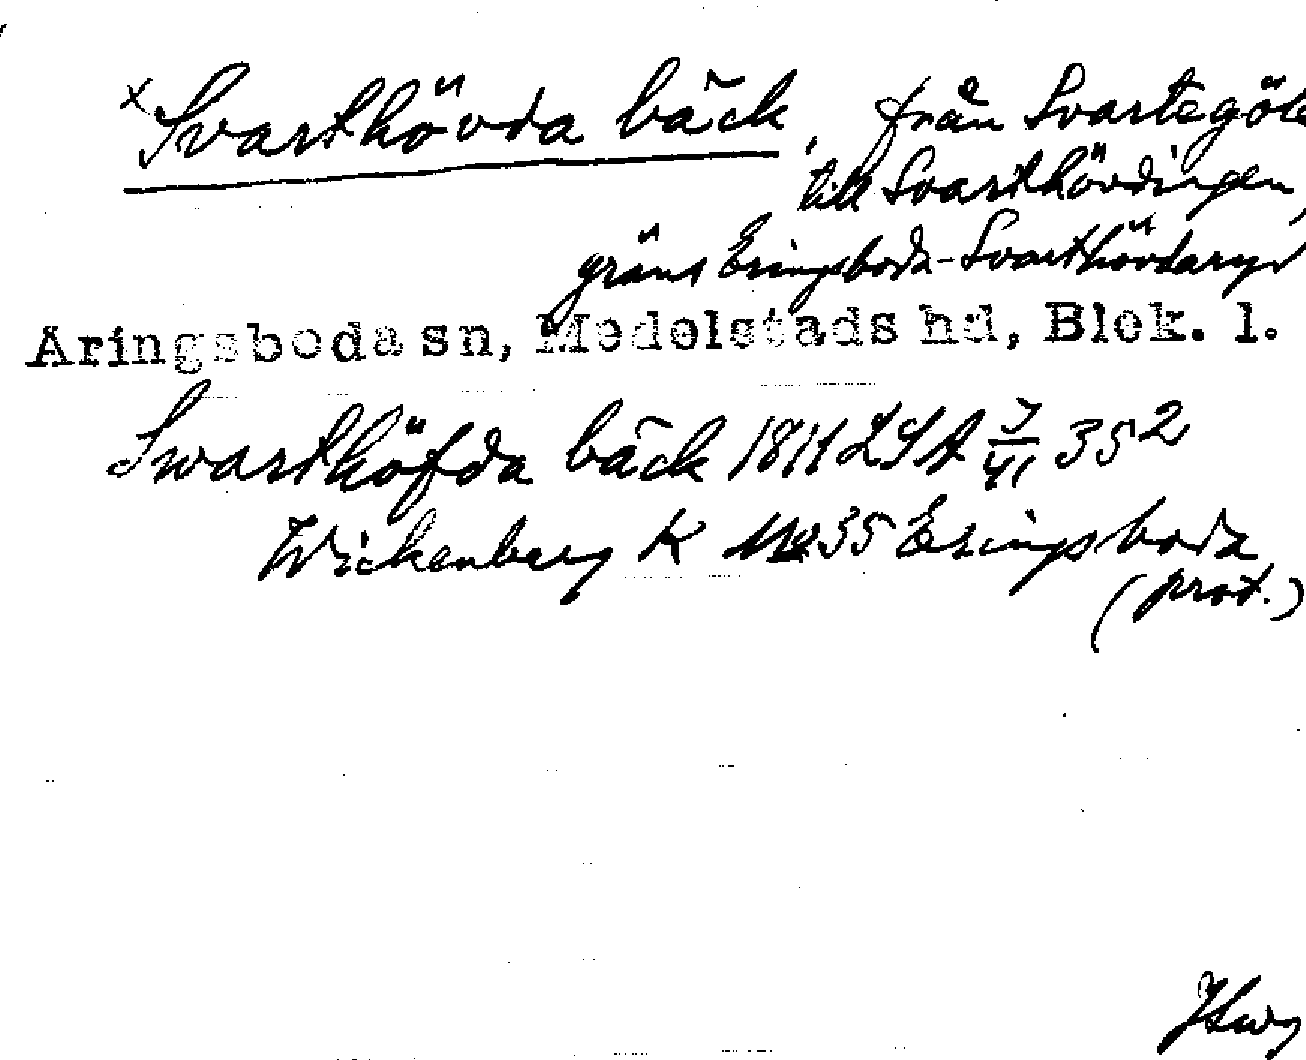 x Svarthövda bäck, från Svartegöl
till Svarthövdingen,
gräns Eringsboda-Svarthövdaryd
Åringsboda sn, Medelstads hd, Blek. l.
Swarthöfda bäck 1811 LSA 35²
Wickenberg K No 35 Eringsboda
(prot.)